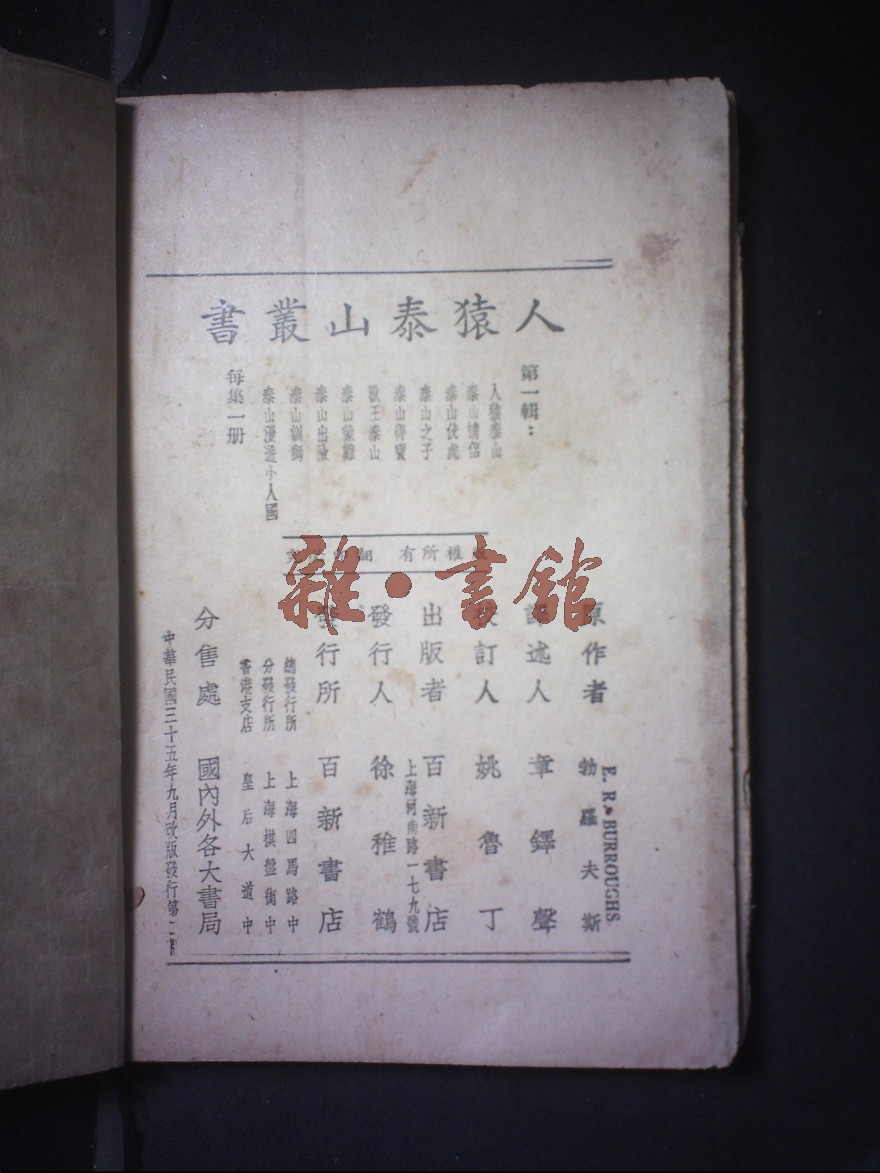 人猿泰山叢書
第一輯：
人猿泰山
泰山情侶
泰山伏虎
泰山之子
泰山得寶
獸王泰山
泰山蒙難
泰山出險
泰山訓獅
泰山漫遊小人國
每集一册
權所有
雜·書館
原作者 勃羅夫斯
E. R. BURROUGHS
譯述人 章鐸聲
校訂人 姚魯丁
出版者 百新書店
上海河南路一七九號
發行人 徐稚鶴
發行所 百新書店
總發行所 上海四馬路中
分發行所 上海棋盤街中
香港支店 皇后大道中
分售處 國內外各大書局
中華民國三十五年九月改版發行第二